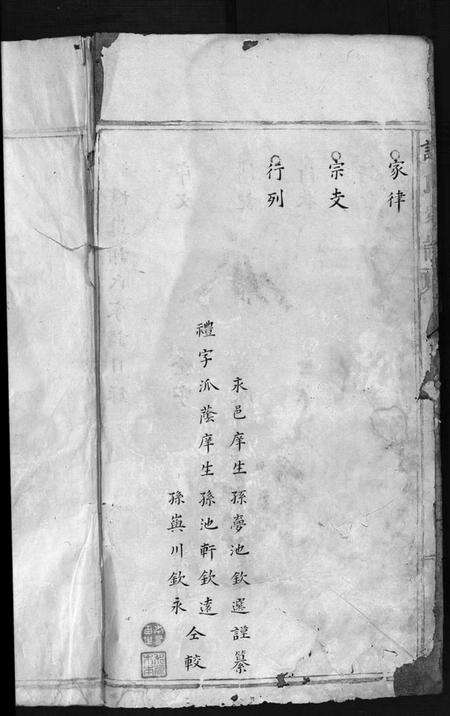 家律
宗支
行列
永邑庠生孫夢池欽選謹纂
禮字派蔭庠生孫池軒欽遠
孫與川欽永
仝較